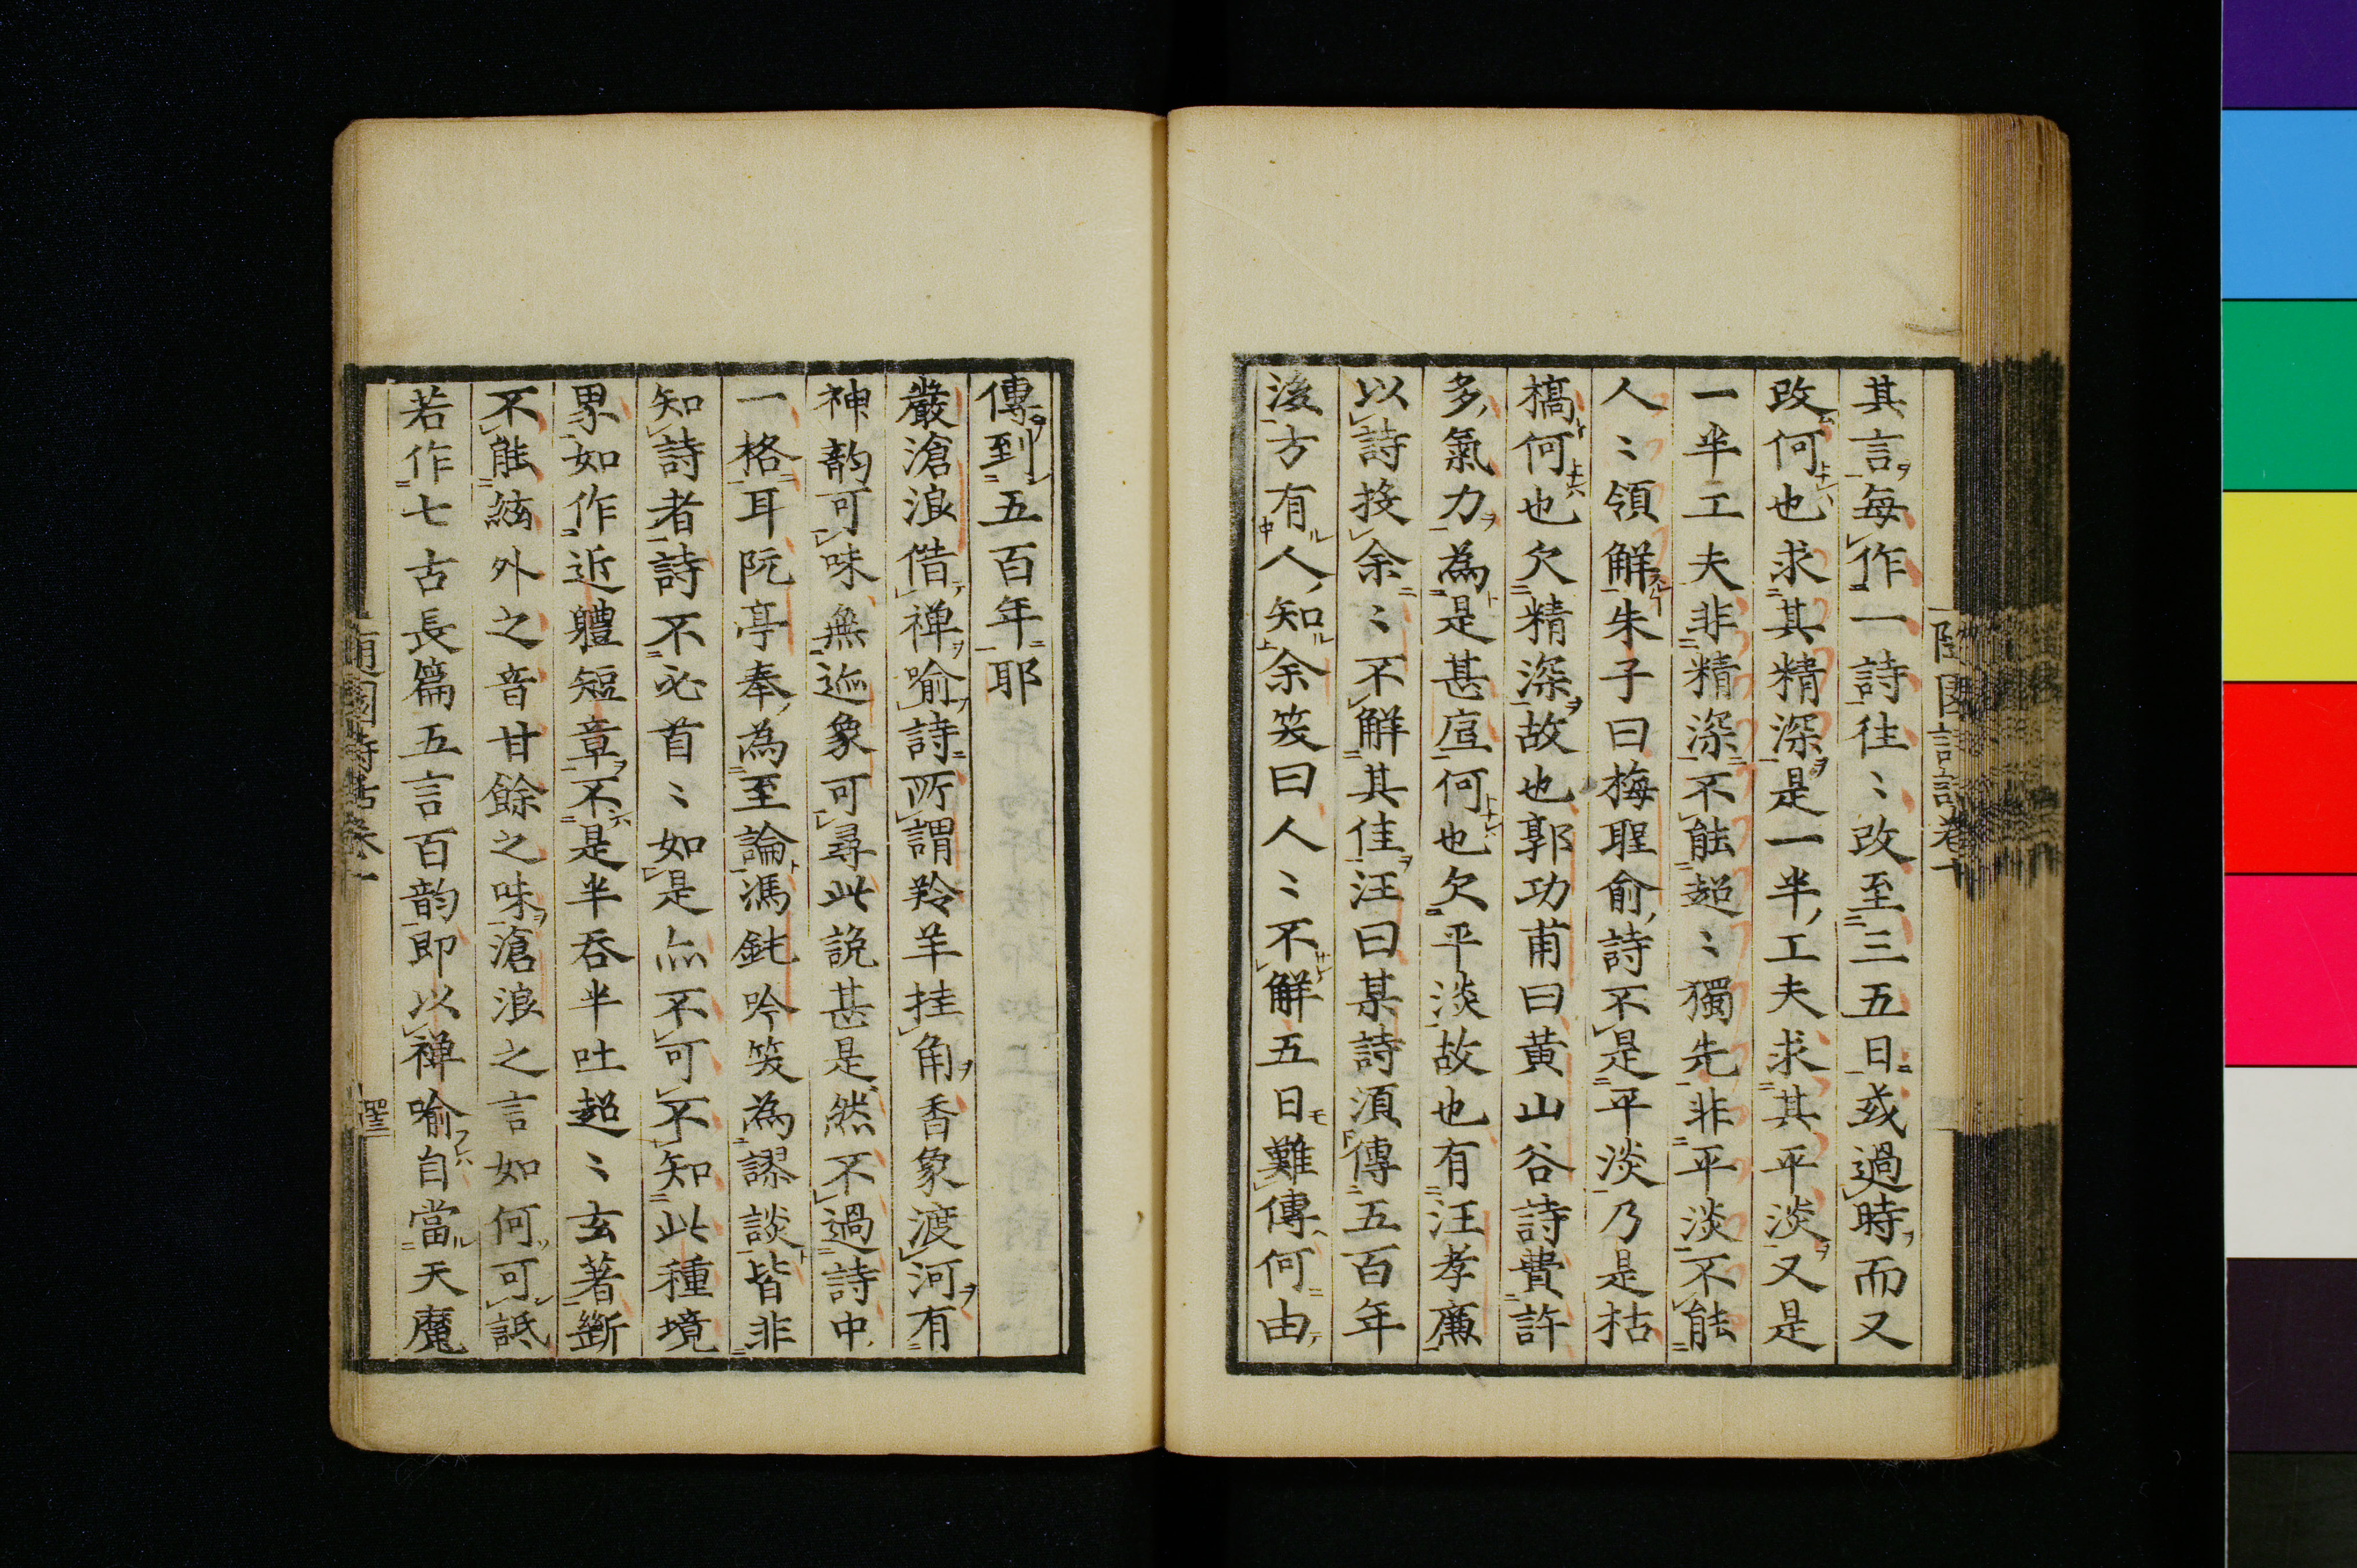 其言每作一詩往〻改至三五日或過時而又
改何也求其精深是一半工夫求其平淡又是
一半工夫非精深不能超〻獨先非平淡不能
人〻領解朱子曰梅聖俞詩不是平淡乃是枯
槁何也欠精深故也郭功甫曰黄山谷詩費許
多氣力為是甚底何也欠平淡故也有汪孝廉
以詩投余〻不解其佳汪曰某詩須傳五百年
後方有人知余笑曰人〻不解五日難傳何由
傳到五百年耶
嚴滄浪借禅喻詩所謂羚羊挂角香象渡河有
神韵可味無迹象可尋此説甚是然不過詩中
一格耳阮亭奉為至論馮鈍吟笑為謬談皆非
知詩者詩不必首〻如是亦不可不知此種境
界如作近軆短章不是半吞半吐超〻玄著斷
不能絃外之音甘餘之味滄浪之言如何可詆
若作七古長篇五言百韵即以禅喻自當天魔
随園詩話卷一